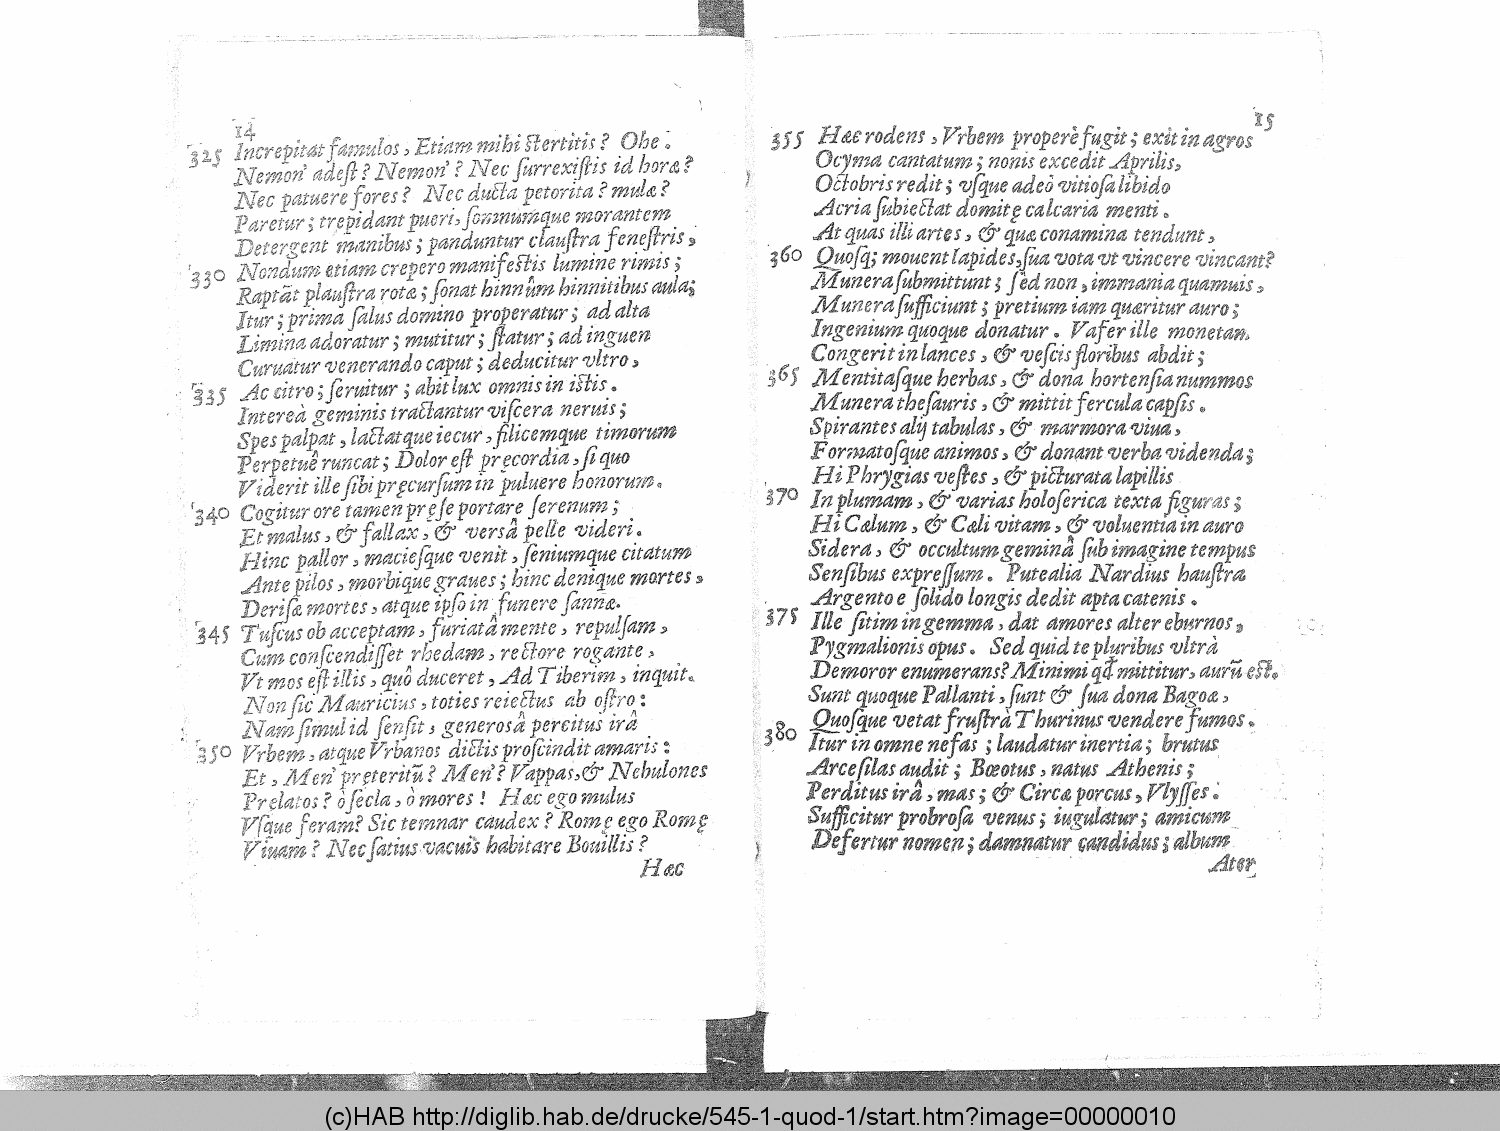 14
325 Increpitat famulos, Etiam mihi stertitis? Ohe.
Nemon' adest? Nemon'? Nec surrexistis id horæ?
Nec patuere fores? Nec ducta petorita? mulæ?
Paretur; trepidant pueri, somnumque morantem
Detergent manibus; panduntur claustra fenestris,
330 Nondum etiam crepero manifestis lumine rimis;
Raptāt plaustra rotæ; sonat hinnûm hinnitibus aula;
Itur; prima salus domino properatur; ad alta
Limina adoratur; mutitur; statur; ad inguen
Curuatur venerando caput; deducitur vltro,
335 Ac citro; seruitur; abit lux omnis in istis.
Intereà geminis tractantur viscera neruis;
Spes palpat, lactatque iecur, filicemque timorum
Perpetuê runcat; Dolor est pręcordia, si quo
Viderit ille sibi pręcursum in puluere honorum.
340 Cogitur ore tamen pręse portare serenum;
Et malus, & fallax, & versâ pelle videri.
Hinc pallor, maciesque venit, seniumque citatum
Ante pilos, morbique graues; hinc denique mortes,
Derisæ mortes, atque ipso in funere sannæ.
345 Tuscus ob acceptam, furiatâ mente, repulsam,
Cum conscendisset rhedam, rectore rogante,
Vt mos est illis, quô duceret, Ad Tiberim, inquit.
Non sic Mauricius, toties reiectus ab ostro:
Nam simul id sensit, generosâ percitus irâ
350 Vrbem, atque Vrbanos dictis proscindit amaris:
Et, Men' pręteritū? Men'? Vappas, & Nebulones
Pręlatos? ò secla, ò mores! Hæc ego mulus
Vsque feram? Sic temnar caudex? Romę ego Romę
Viuam? Nec satius vacuis habitare Bouillis?
Hæc
15
355 Hæc rodens, Vrbem properè fugit; exit in agros
Ocyma cantatum; nonis excedit Aprilis,
Octobris redit; vsque adeò vitiosa libido
Acria subiectat domitę calcaria menti.
At quas illi artes, & quæ conamina tendunt,
360 Quosq; mouent lapides, sua vota vt vincere vincant?
Munera submittunt; sed non, immania quamuis,
Munera sufficiunt; pretium iam quæritur auro;
Ingenium quoque donatur. Vafer ille monetam
Congerit in lances, & vescis floribus abdit;
365 Mentitasque herbas, & dona hortensia nummos
Munera thesauris, & mittit fercula capsis.
Spirantes alij tabulas, & marmora viua,
Formatosque animos, & donant verba videnda;
Hi Phrygias vestes, & picturata lapillis
370 In plumam, & varias holoserica texta figuras;
Hi Cælum, & Cæli vitam, & voluentia in auro
Sidera, & occultum geminâ sub imagine tempus
Sensibus expressum. Putealia Nardius haustra
Argento e solido longis dedit apta catenis.
375 Ille sitim in gemma, dat amores alter eburnos,
Pygmalionis opus. Sed quid te pluribus vltrà
Demoror enumerans? Minimi qđ mittitur, aurū est.
Sunt quoque Pallanti, sunt & sua dona Bagoæ,
Quosque vetat frustrà Thurinus vendere fumos.
380 Itur in omne nefas; laudatur inertia; brutus
Arcesilas audit; Bœotus, natus Athenis;
Perditus irâ, mas; & Circæ porcus, Vlysses:
Sufficitur probrosa venus; iugulatur; amicum
Defertur nomen; damnatur candidus; album
Ater
(c)HAB http://diglib.hab.de/drucke/545-1-quod-1/start.htm?image=00000010